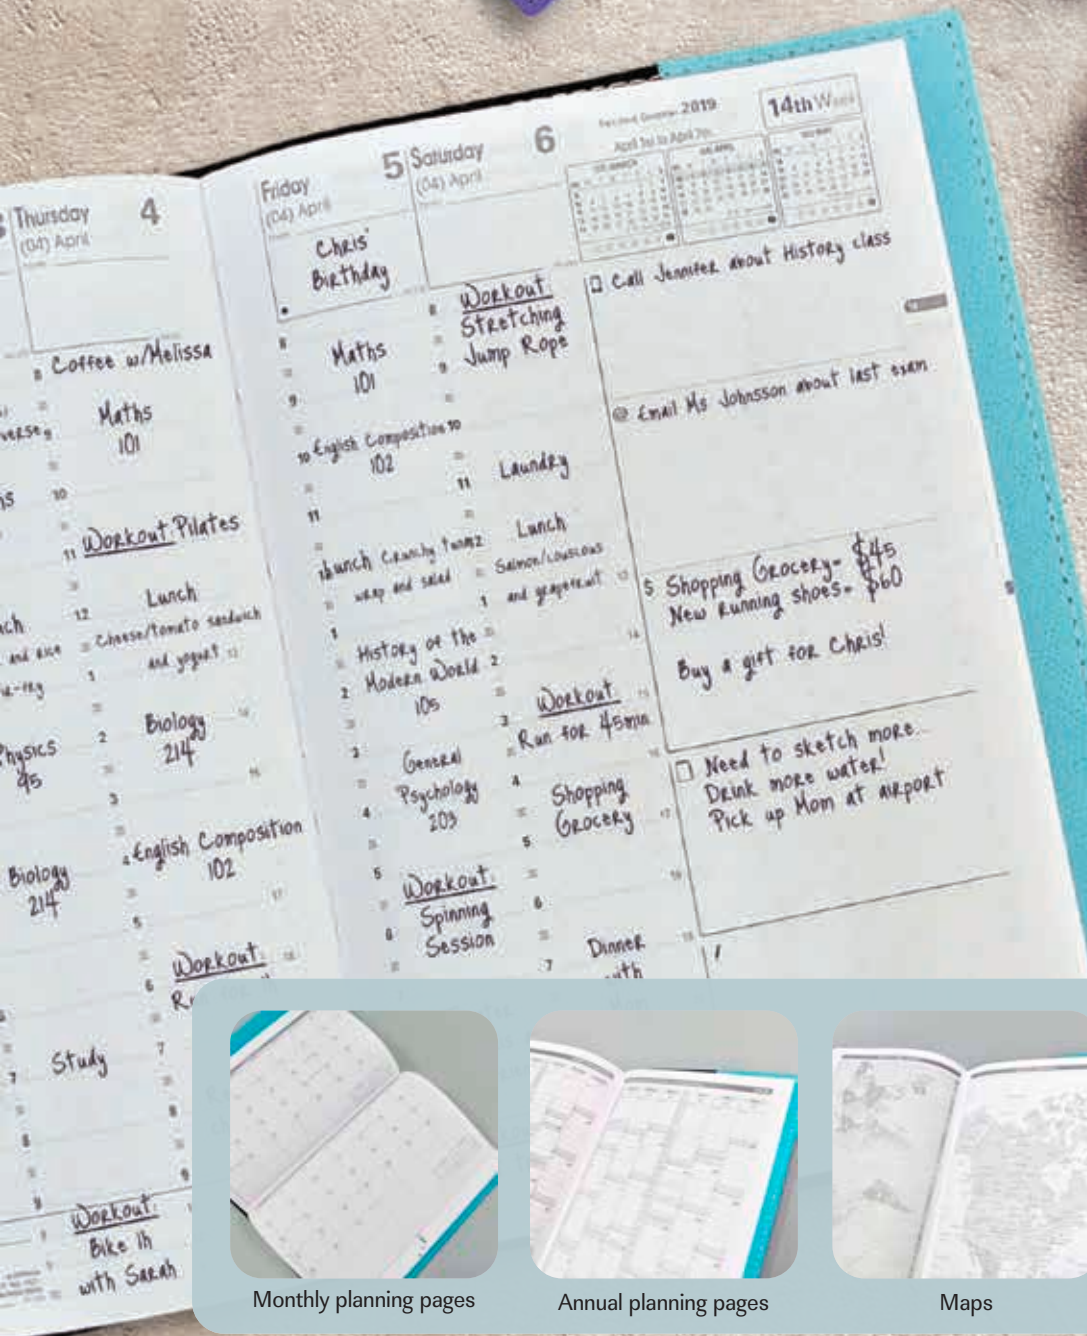 Thursday 4
(04) April
8 Coffee w/Melissa
Maths
101
10
11 Workout: Pilates
12 Lunch
Cheese/tomato sandwich
1 and yogurt
2 Biology
214
3
4 English Composition
102
5
6 Workout:
7
8
9
verse
and rice
Physics
95
Biology
214
7 Study
8
9
Workout:
Bike 1h
with Sarah
Friday 5
(04) April
Chris'
Birthday
8 Maths
101
9
10 English Composition
102
11
Lunch Crunchy
wrap and salad
1 History of the
2 Modern World
105
3 General
Psychology
4 203
5 Workout:
Spinning
6 Session
Saturday 6
(04) April
8 Workout:
Stretching
9 Jump Rope
10
Laundry
11
Lunch
Salmon/couscous
1 and grapefruit
2
3 Workout:
Run for 45min
4 Shopping
Grocery
5
6
7 Dinner
2019
14th Week
April 1st to April 7th
Call Jennifer about History class
@ Email Ms Johnsson about last exam
$ Shopping Grocery- $45
New Running shoes- $60
Buy a gift for Chris!
Need to sketch more...
Drink more water!
Pick up Mom at airport
Monthly planning pages
Annual planning pages
Maps